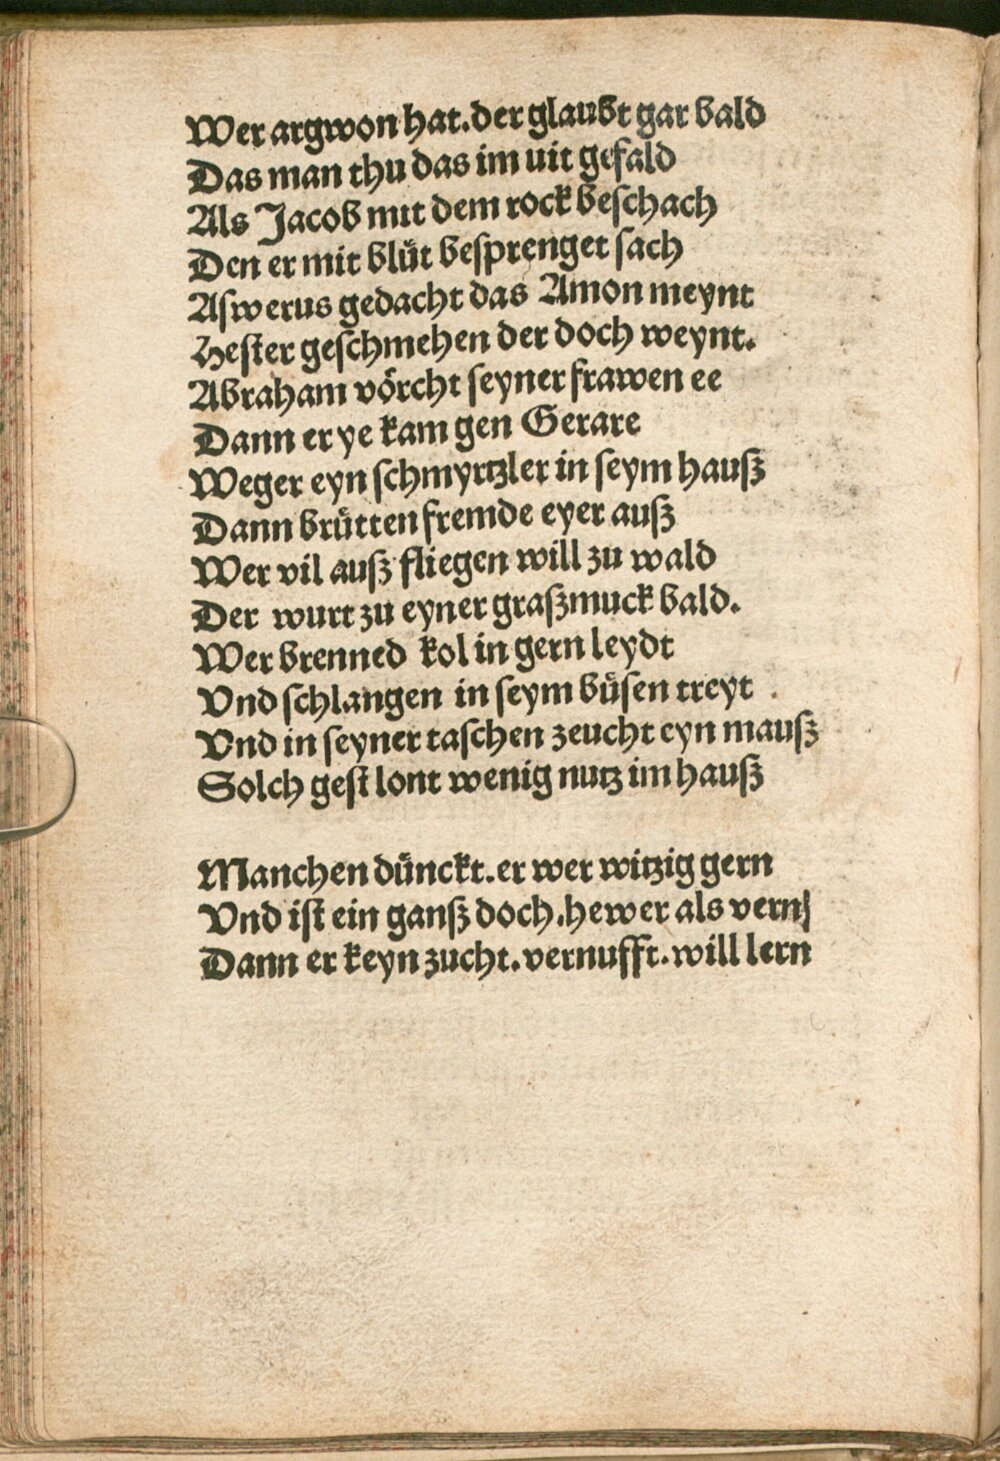 Wer argwon hat. der glaubt gar bald
Das man thu das im uit gefald
Als Jacob mit dem rock beſchach
Den er mit bluͤt beſprenget ſach
Aſwerus gedacht das Amon meynt
Heſter geſchmehen der doch weynt.
Abraham voͤrcht ſeyner frawen ee
Dann er ye kam gen Gerare
Weger eyn ſchmyrtzler in ſeym hauſz
Dann bruͤtten fremde eyer auſz
Wer vil auſz fliegen will zu wald
Der wurt zu eyner graſzmuck bald.
Wer brenned kol in gern leydt
Vnd ſchlangen in ſeym buͤſen treyt
Vnd in ſeyner taſchen zeucht eyn mauſz
Solch geſt lont wenig nutz im hauſz
Manchen duͤnckt. er wer witzig gern
Vnd iſt ein ganſz doch. hewer als vern
Dann er keyn zucht. vernufft. will lern